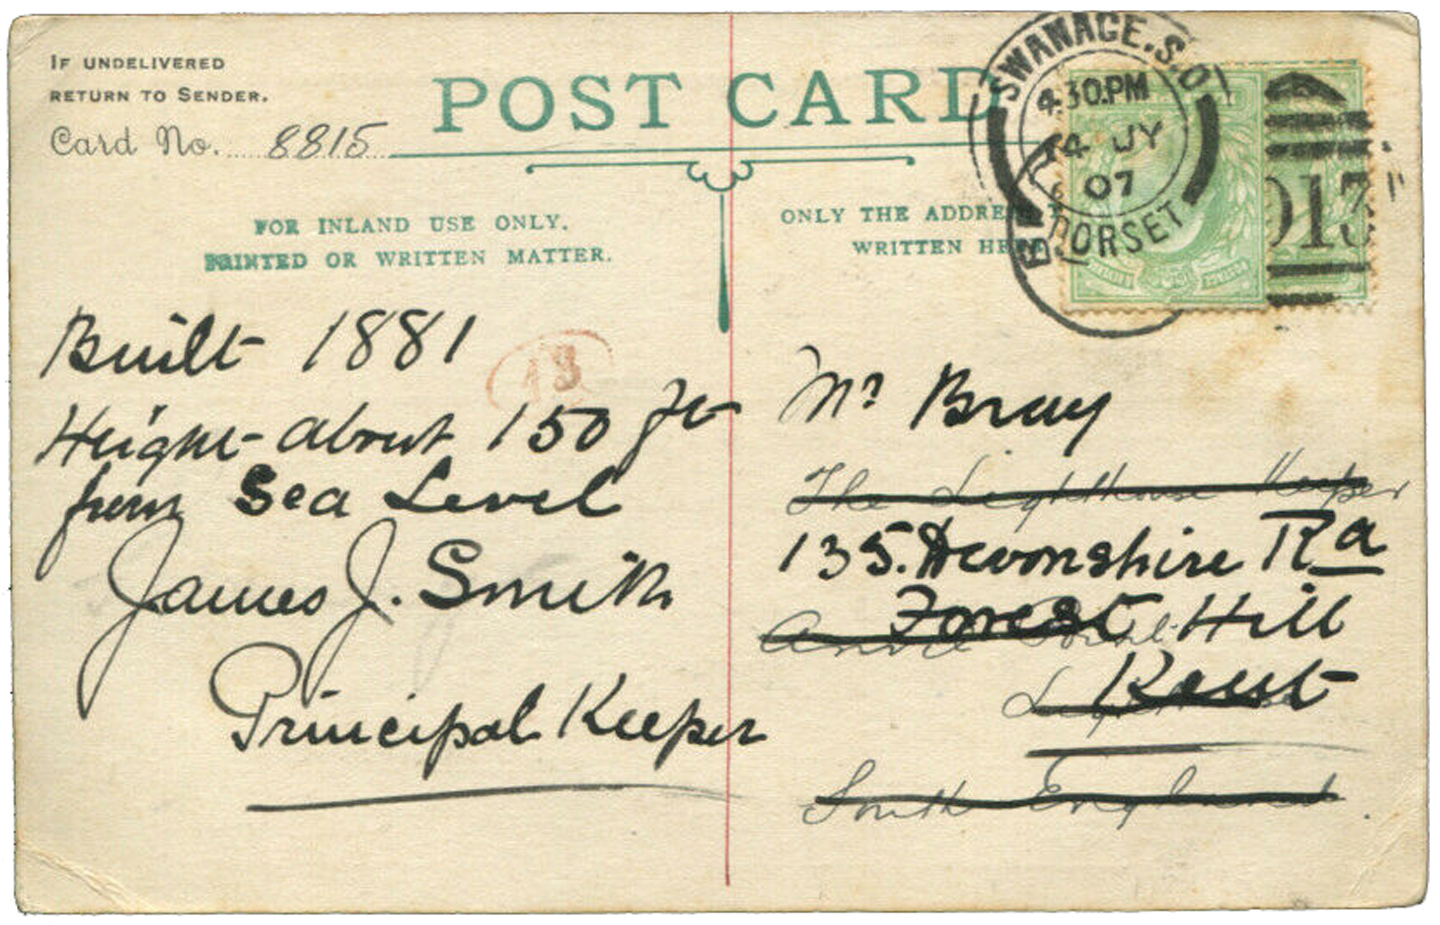 IF UNDELIVERED
RETURN TO SENDER.
Card No. 8815
POST CARD
FOR INLAND USE ONLY.
PRINTED OR WRITTEN MATTER.
ONLY THE ADDRE
WRITTEN HE
SWANAGE.S.O
4.30.PM
4 JY
07
DORSET
13
Built 1881
Height about 150 ft
from Sea Level
James J. Smith
Principal Keeper
Mr Bray
The Lighthouse Keeper
135. Devonshire Rd
Forest Hill
Kent
South England.